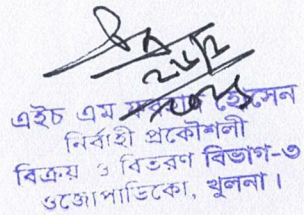 ২৬/২
এইচ এম হোসেন
নির্বাহী প্রকৌশলী
বিক্রয় ও বিতরণ বিভাগ-৩
ওজোপাডিকো, খুলনা।